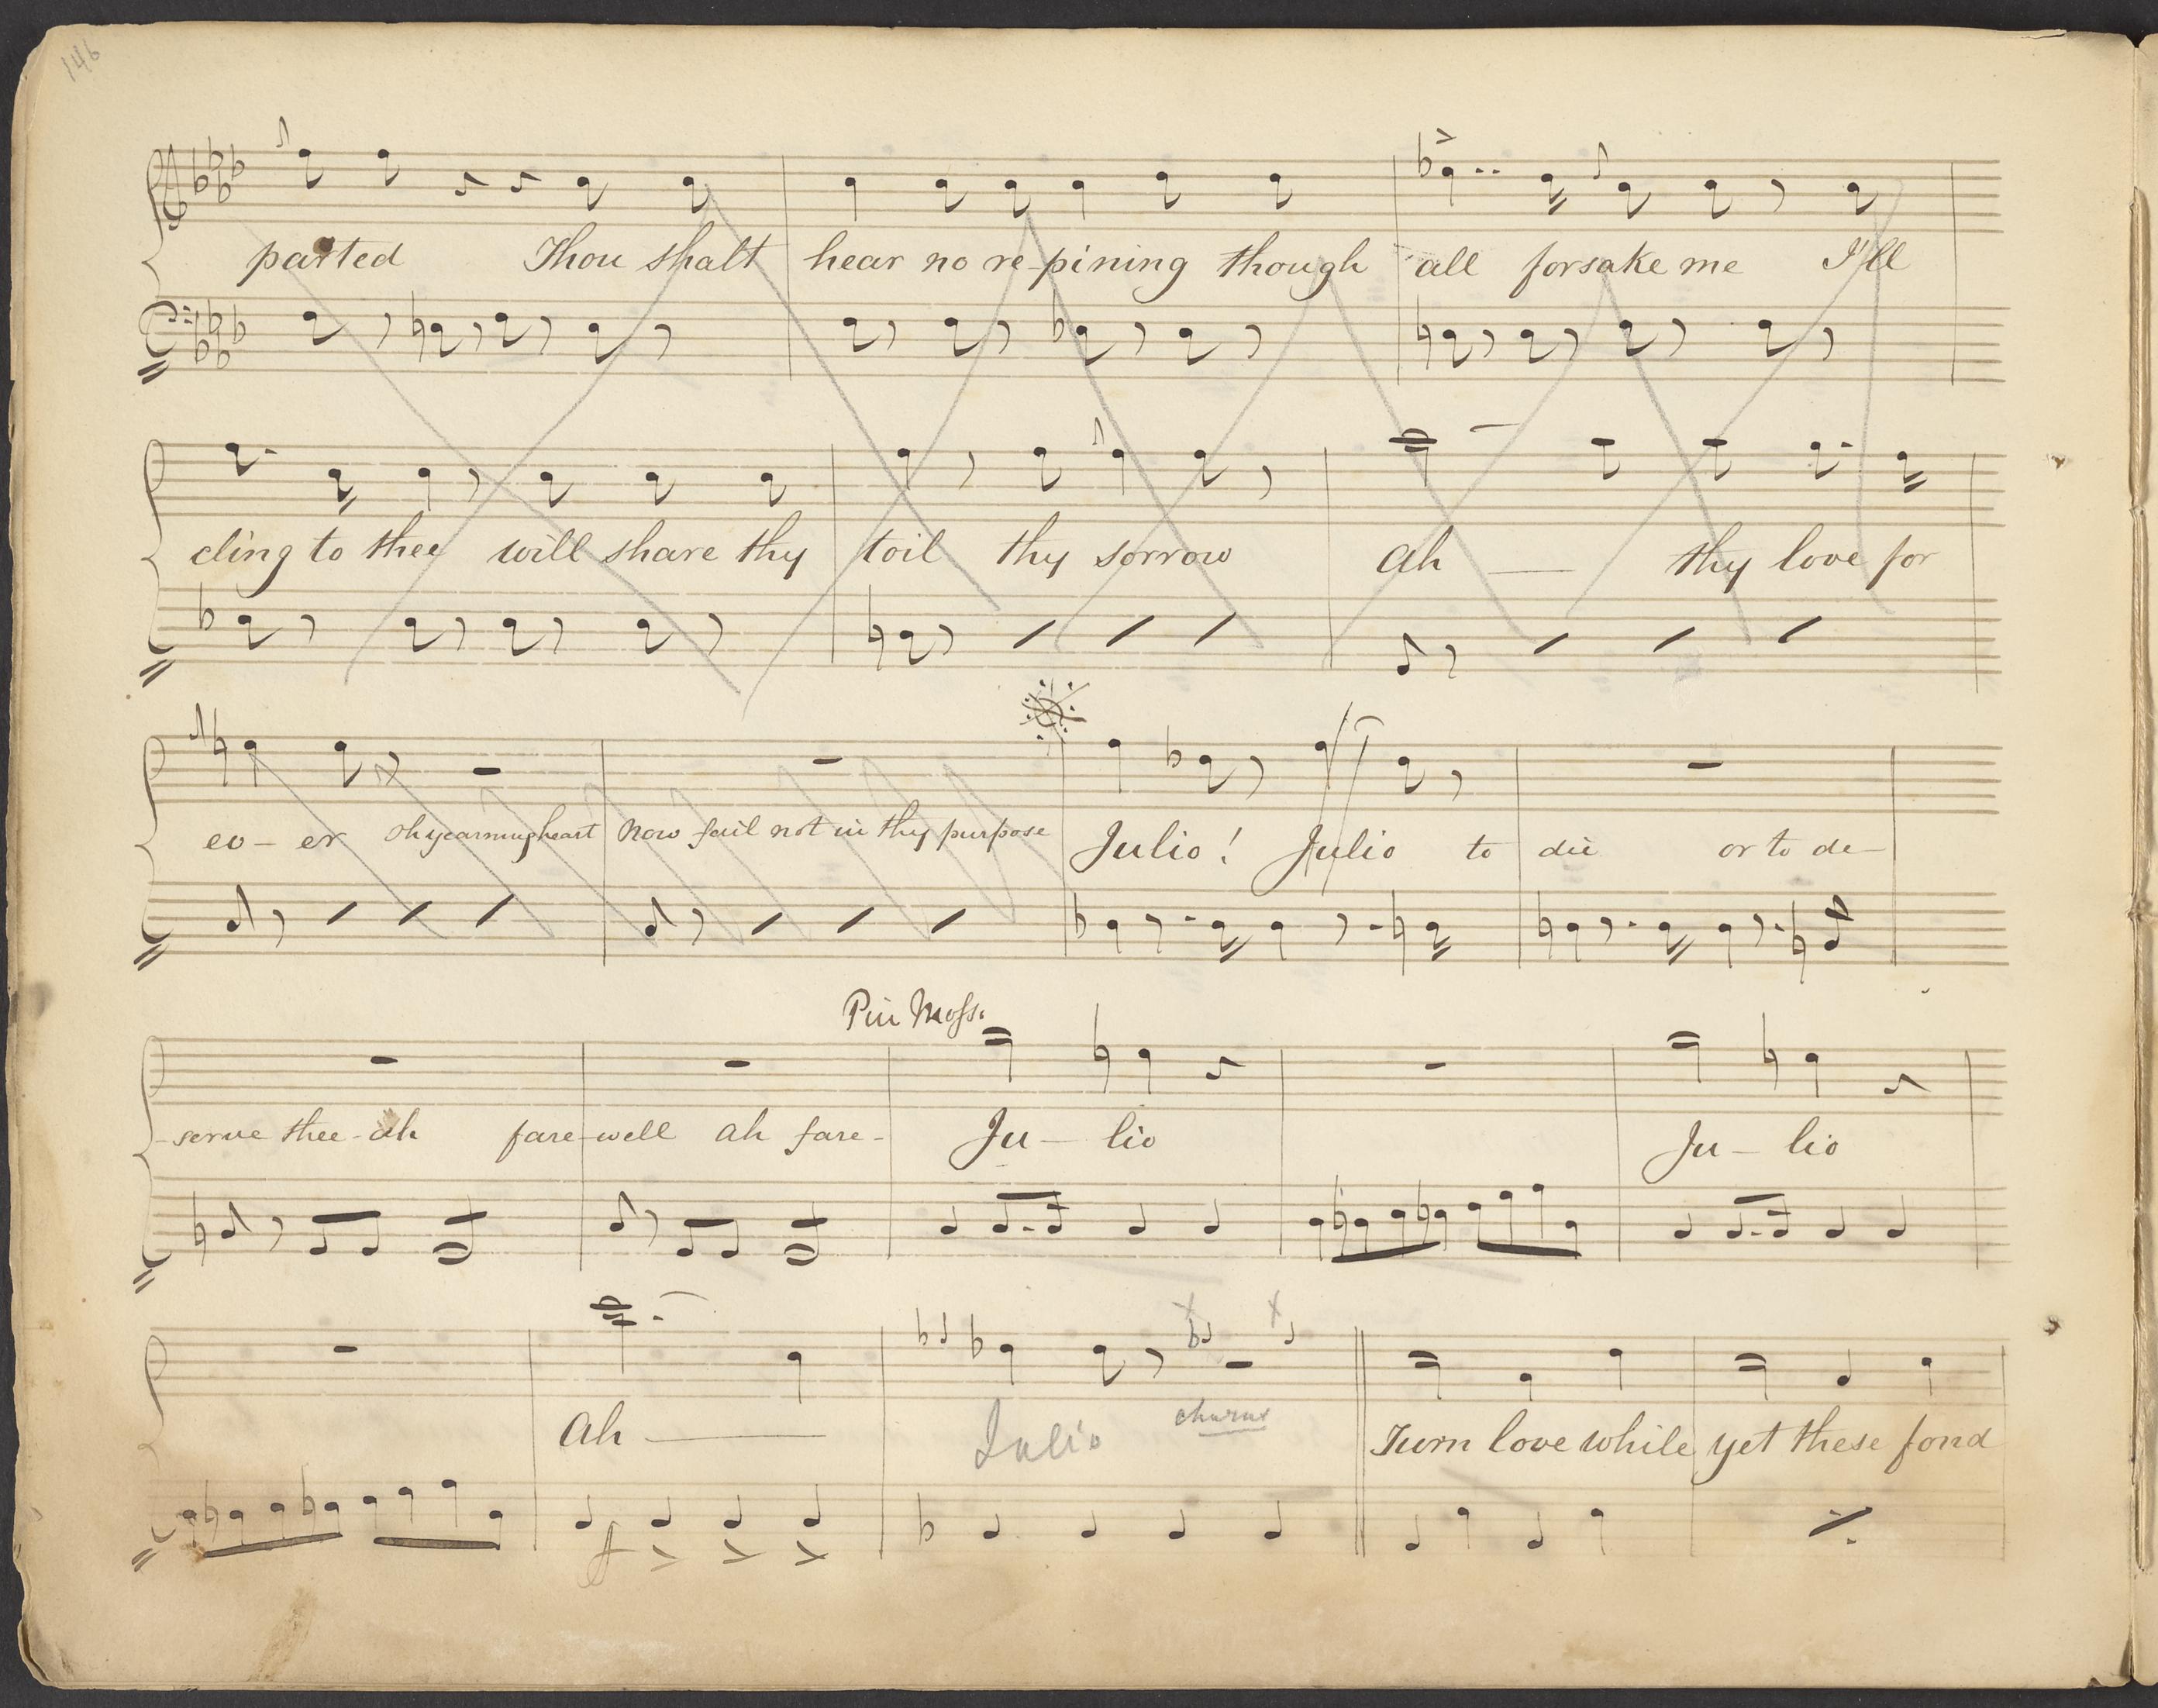 146
parted Thou shalt hear no re-pining though all forsake me I'll
cling to thee will share thy toil thy sorrow ah — thy love for
ev - er oh yearning heart Now fail not in thy purpose Julio! Julio to die or to de-
Piu Moss.
-serve thee - ah fare-well ah fare- Ju - lio Ju - lio
Ah — Julio chorus Turn love while yet these fond